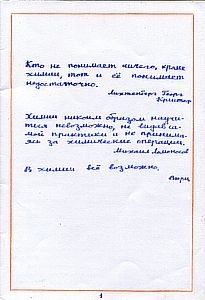 Кто не понимает ничего, кроме
химии, тот и её понимает
недостаточно.
Лихтенберг Георг
Кристоф
Химии никоим образом научи-
ться невозможно, не видав са-
мой практики и не принима-
ясь за химические операции.
Михаил Ломоносов
В химии всё возможно.
1